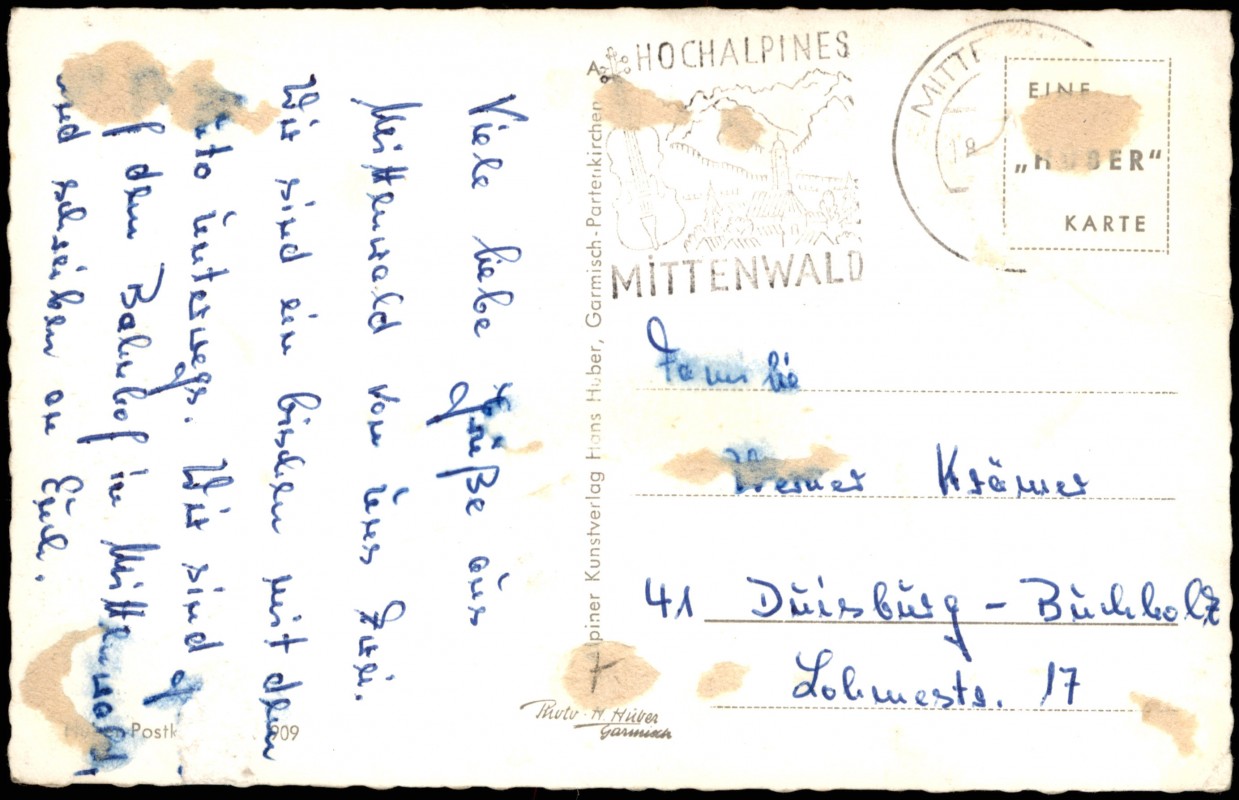 Viele liebe Grüße aus
Mittenwald von uns Zwei.
Wir sind ein bischen mit dem
unterwegs. Wir sind
dem Bahnhof in Mittenwald,
und schreiben an Euch.
HOCHALPINES
MITTENWALD
MITTE
18
EINE
„HUBER“
KARTE
Alpiner Kunstverlag Hans Huber, Garmisch-Partenkirchen
Familie
Werner Krämer
41 Duisburg - Buchholz
Lohmestr. 17
Photo H. Huber
Garmisch
Postk 909